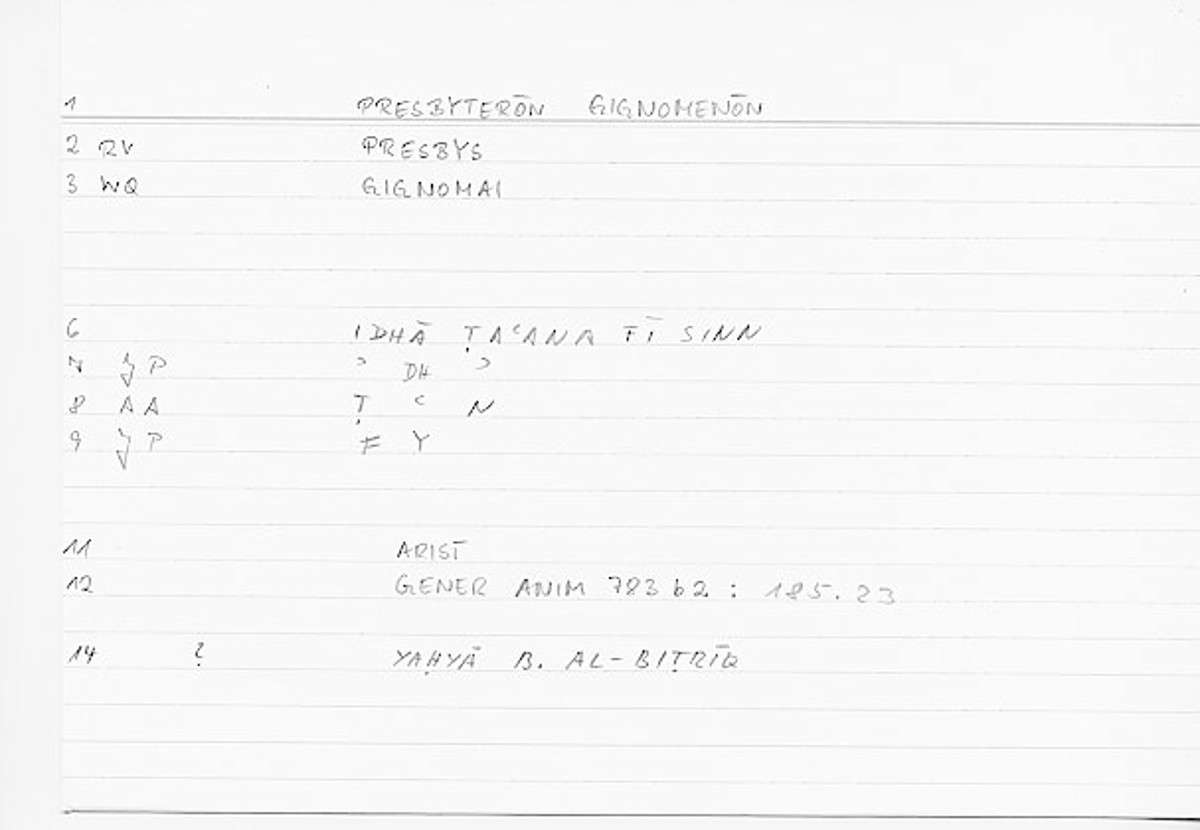 1 PRESBYTERŌN GIGNOMENŌN
2 RV PRESBYS
3 WQ GIGNOMAI
6 IDHĀ ṬAʿANA FĪ SINN
7 JP ʾ DH ʾ
8 AA Ṭ ʿ N
9 JP F Y
11 ARIST
12 GENER ANIM 783 b2 : 185.23
14 ? YAḤYĀ B. AL-BIṬRĪQ